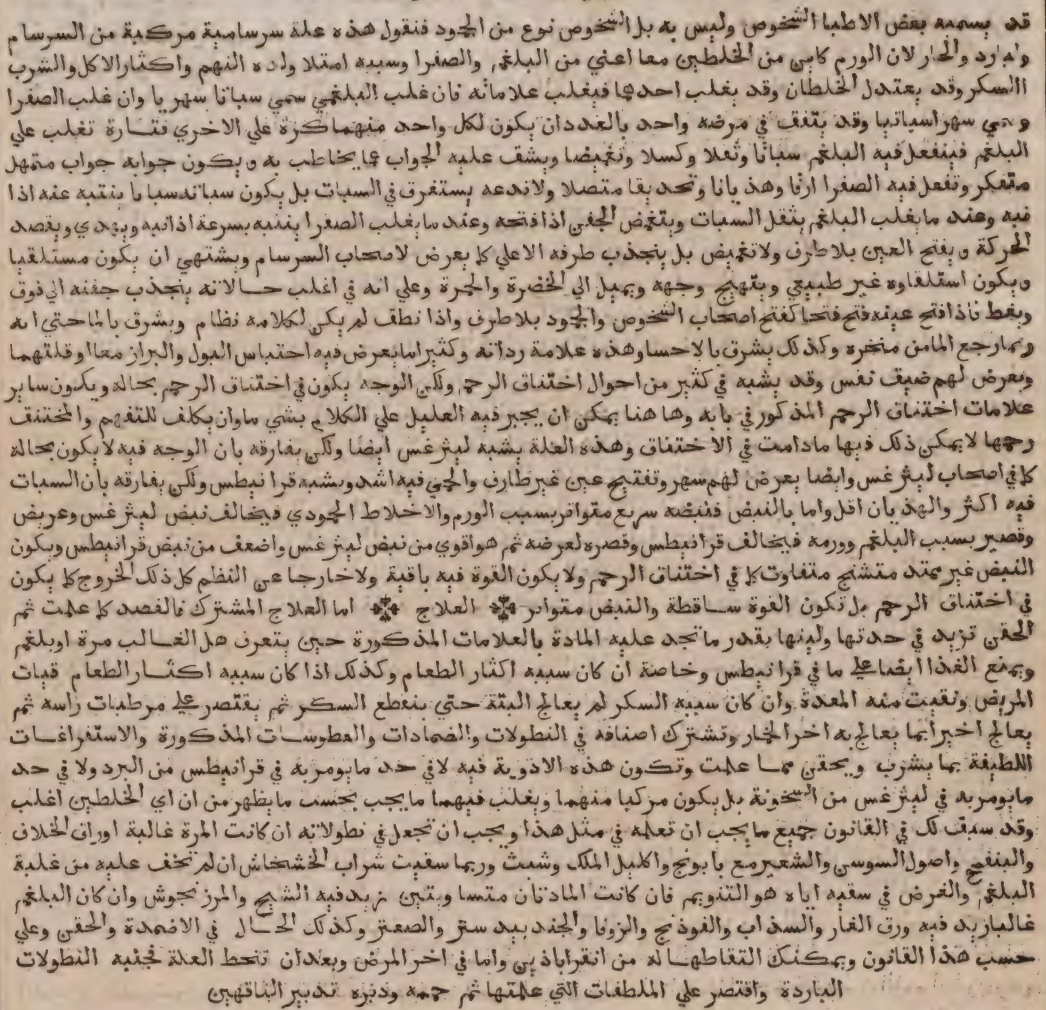 قد يسميه بعض الاطبا الشخوص وليس به بل الشخوص نوع من الجمود فنقول هذه علة سرسامية مركبة من السرسام
والبارد والحار لان الورم كاين من الخلطين معا اعني من البلغم والصفرا وسببه امتلا ولده النهم واكثار الاكل والشرب
السكر وقد يعتدل الخلطان وقد يغلب احدهما فيغلب علاماته فان غلب البلغمي سمي سباتا سهريا وان غلب الصفرا
وسمي سهرا سباتيا وقد يتفق في مرضه واحد بالعددان يكون لكل واحد منهما كرة علي الاخري فتارة تغلب علي
البلغم فينفعل فيه البلغم سباتا وثقلا وكسلا وتغميضا ويشق عليه الجواب عما يخاطب به ويكون جوابه جواب متمهل
متفكر وتفعل فيه الصفرا ارقا وهذيانا وتحديقا متصلا ولا ندعه يستغرق في السبات بل يكون سباته سباتا ينتبه عنه اذا
فيه وعند ما يغلب البلغم يثقل السبات ويتغمض الجفن اذا فتحه وعند ما يغلب الصفرا ينتبه بسرعة اذا نبه ويهدي ويقصد
الحركة ويفتح العين بلا طرف ولا تغميض بل ينجذب طرفه الاعلي كما يعرض لاصحاب السرسام ويشتهي ان يكون مستلقيا
ويكون استلقاوه غير طبيعي ويتهيج وجهه ويميل الي الخضرة والحمرة وعلي انه في اغلب حالاته ينجذب جفنه الي فوق
ويغط فاذا فتح عينه فتح فتحا كفتح اصحاب الشخوص والجمود بلا طرف واذا نطق لم يكن لكلامه نظام ويشرق بالما حتي انه
ربما رجع الما من منخره وكذلك يشرق بالاحسا وهذه علامة ردانه وكثيرا ما يعرض فيه احتباس البول والبراز معا او قلتهما
ويعرض لهم ضيق نفس وقد يشبه في كثير من احوال اختناق الرحم ولكن الوجه يكون في اختناق الرحم بحاله ويكون ساير
علامات اختناق الرحم المذكور في بابه وها هنا يمكن ان يجبر فيه العليل علي الكلام بشي ما وان يكلف للتفهم والمختنق
رحمها لا يمكن ذلك فيها ما دامت في الاختناق وهذه العلة يشبه ليثرغس ايضا ولكن يفارقه بان الوجه فيه لا يكون بحاله
كما في اصحاب ليثرغس وايضا يعرض لهم سهر وتفتيح عين غير طارف والحمي فيه اشد ويشبه قرانيطس ولكن يفارقه بان السبات
فيه اكثر والهذيان اقل واما بالنبض فنبضه سريع متواتر بسبب الورم والاخلاط الجمودي فيخالف نبض ليثرغس وعريض
وقصير بسبب البلغم وورمه فيخالف قرانيطس وقصره لعرضه ثم هو اقوي من نبض ليثرغس واضعف من نبض قرانيطس ويكون
النبض غير ممتد متشنج متفاوت كما في اختناق الرحم ولا يكون القوة فيه باقية ولا خارجا عن النظم كل ذلك الخروج كما يكون
في اختناق الرحم بل تكون القوة ساقطة والنبض متواتر العلاج اما العلاج المشترك فالفصد كما علمت ثم
الحقن تزيد في حدتها ولينها بقدر ما تجد عليه المادة بالعلامات المذكورة حين يتعرف هل الغالب مرة او بلغم
ويمنع الغذا ايضا علي ما في قرانيطس وخاصة ان كان سببه اكثار الطعام وكذلك اذا كان سببه اكثار الطعام قيات
المريض ونقيت منه المعدة وان كان سببه السكر لم يعالج البتة حتي ينقطع السكر ثم يقتصر علي مرطبات راسه ثم
يعالج اخيرا بما يعالج به اخر الخمار وتشترك اصنافه في النطولات والضمادات والعطوسات المذكورة والاستفراغات
اللطيفة بما يشرب ويحقن مما علمت وتكون هذه الادوية فيه لا في حد ما يومر به في قرانيطس من البرد ولا في حد
ما يومر به في ليثرغس من السخونة بل يكون مركبا منهما ويغلب فيهما ما يجب بحسب ما يظهر من ان اي الخلطين اغلب
وقد سبق لك في القانون جميع ما يجب ان تعلمه في مثل هذا ويجب ان تجعل في نطولاته ان كانت المرة غالبة اوراق الخلاف
والبنفسج واصول السوسن والشعير مع بابونج واكليل الملك وشبث وربما سقيت شراب الخشخاش ان لم تخف عليه من غلبة
البلغم والغرض في سقيه اياه هو التنويم فان كانت المادتان متساويتين زيد فيه الشيح والمرزنجوش وان كان البلغم
غالبا زيد فيه ورق الغار والسذاب والفوذنج والزوفا والجندبيدستر والصعتر وكذلك الحال في الاضمدة والحقن وعلي
حسب هذا القانون ويمكنك التقاطها له من انقراباذين واما في اخر المرض وبعد ان تنحط العلة فجنبه النطولات
الباردة واقتصر علي الملطفات التي علمتها ثم حممه ودبره تدبير الناقهين